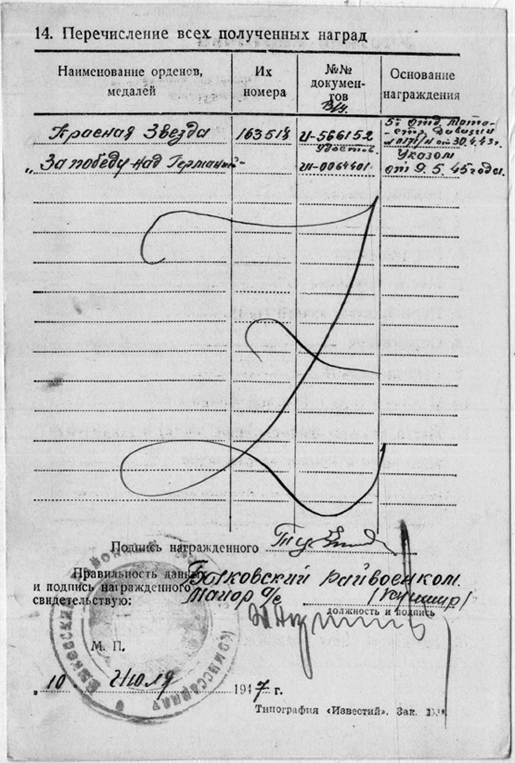 14. Перечисление всех полученных наград
Наименование орденов, медалей
Их номера
№№ документов
Основание награждения
Красная Звезда 163518 И-566152 5й отд. мото-
стр. Дивизии
от 30.4.43г.
"За победу над Германией" удост. Ш-0064401 Указом
от 9.5.45 года.
Подпись награжденного
Правильность данных
и подпись награжденного
свидетельствую:
Райвоенком.
Майор а/с (Кушнир)
должность и подпись
М. П.
„10 Июля 1947 г.
Типография «Известий». Зак.